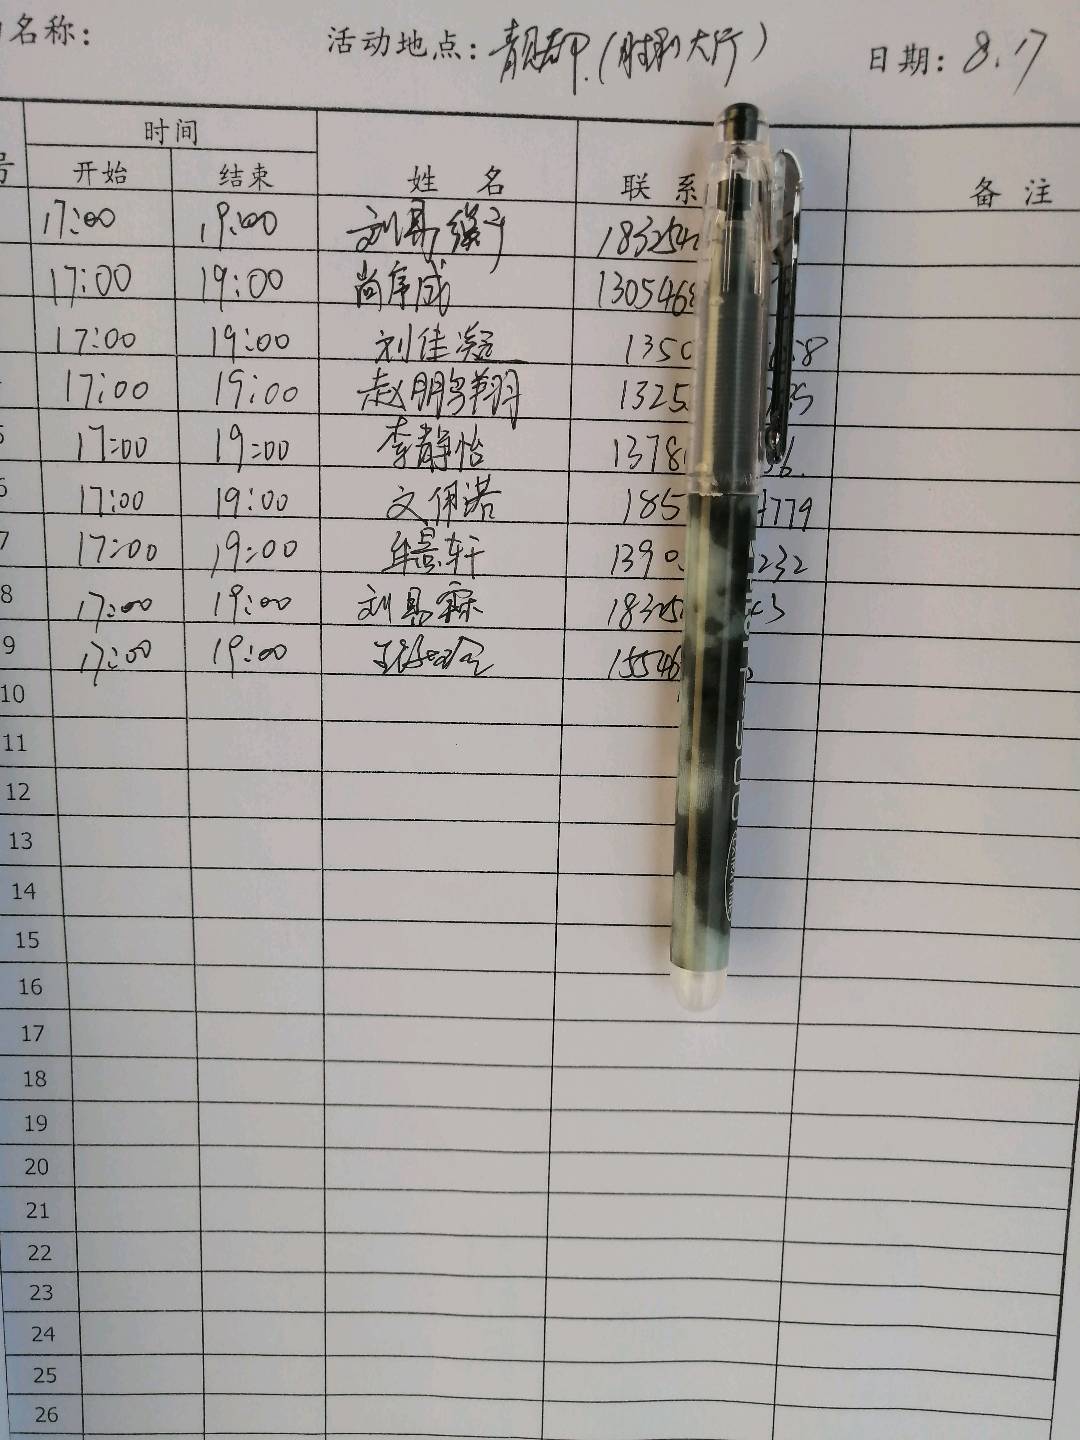 名称: 活动地点: 日期: 8.17
号 时间 姓 名 联 系 备 注
开始 结束
17:00 19:00 刘易 18325
17:00 19:00 尚 130546
17:00 19:00 刘佳凝 1350 58
17:00 19:00 赵鹏翔 1325
5 17:00 19:00 李静怡 1378 36.
6 17:00 19:00 文佩诺 185 4779
7 17:00 19:00 牟景轩 139 232
8 17:00 19:00 刘易霖 1832
9 17:00 19:00 15546
10
11
12
13
14
15
16
17
18
19
20
21
22
23
24
25
26